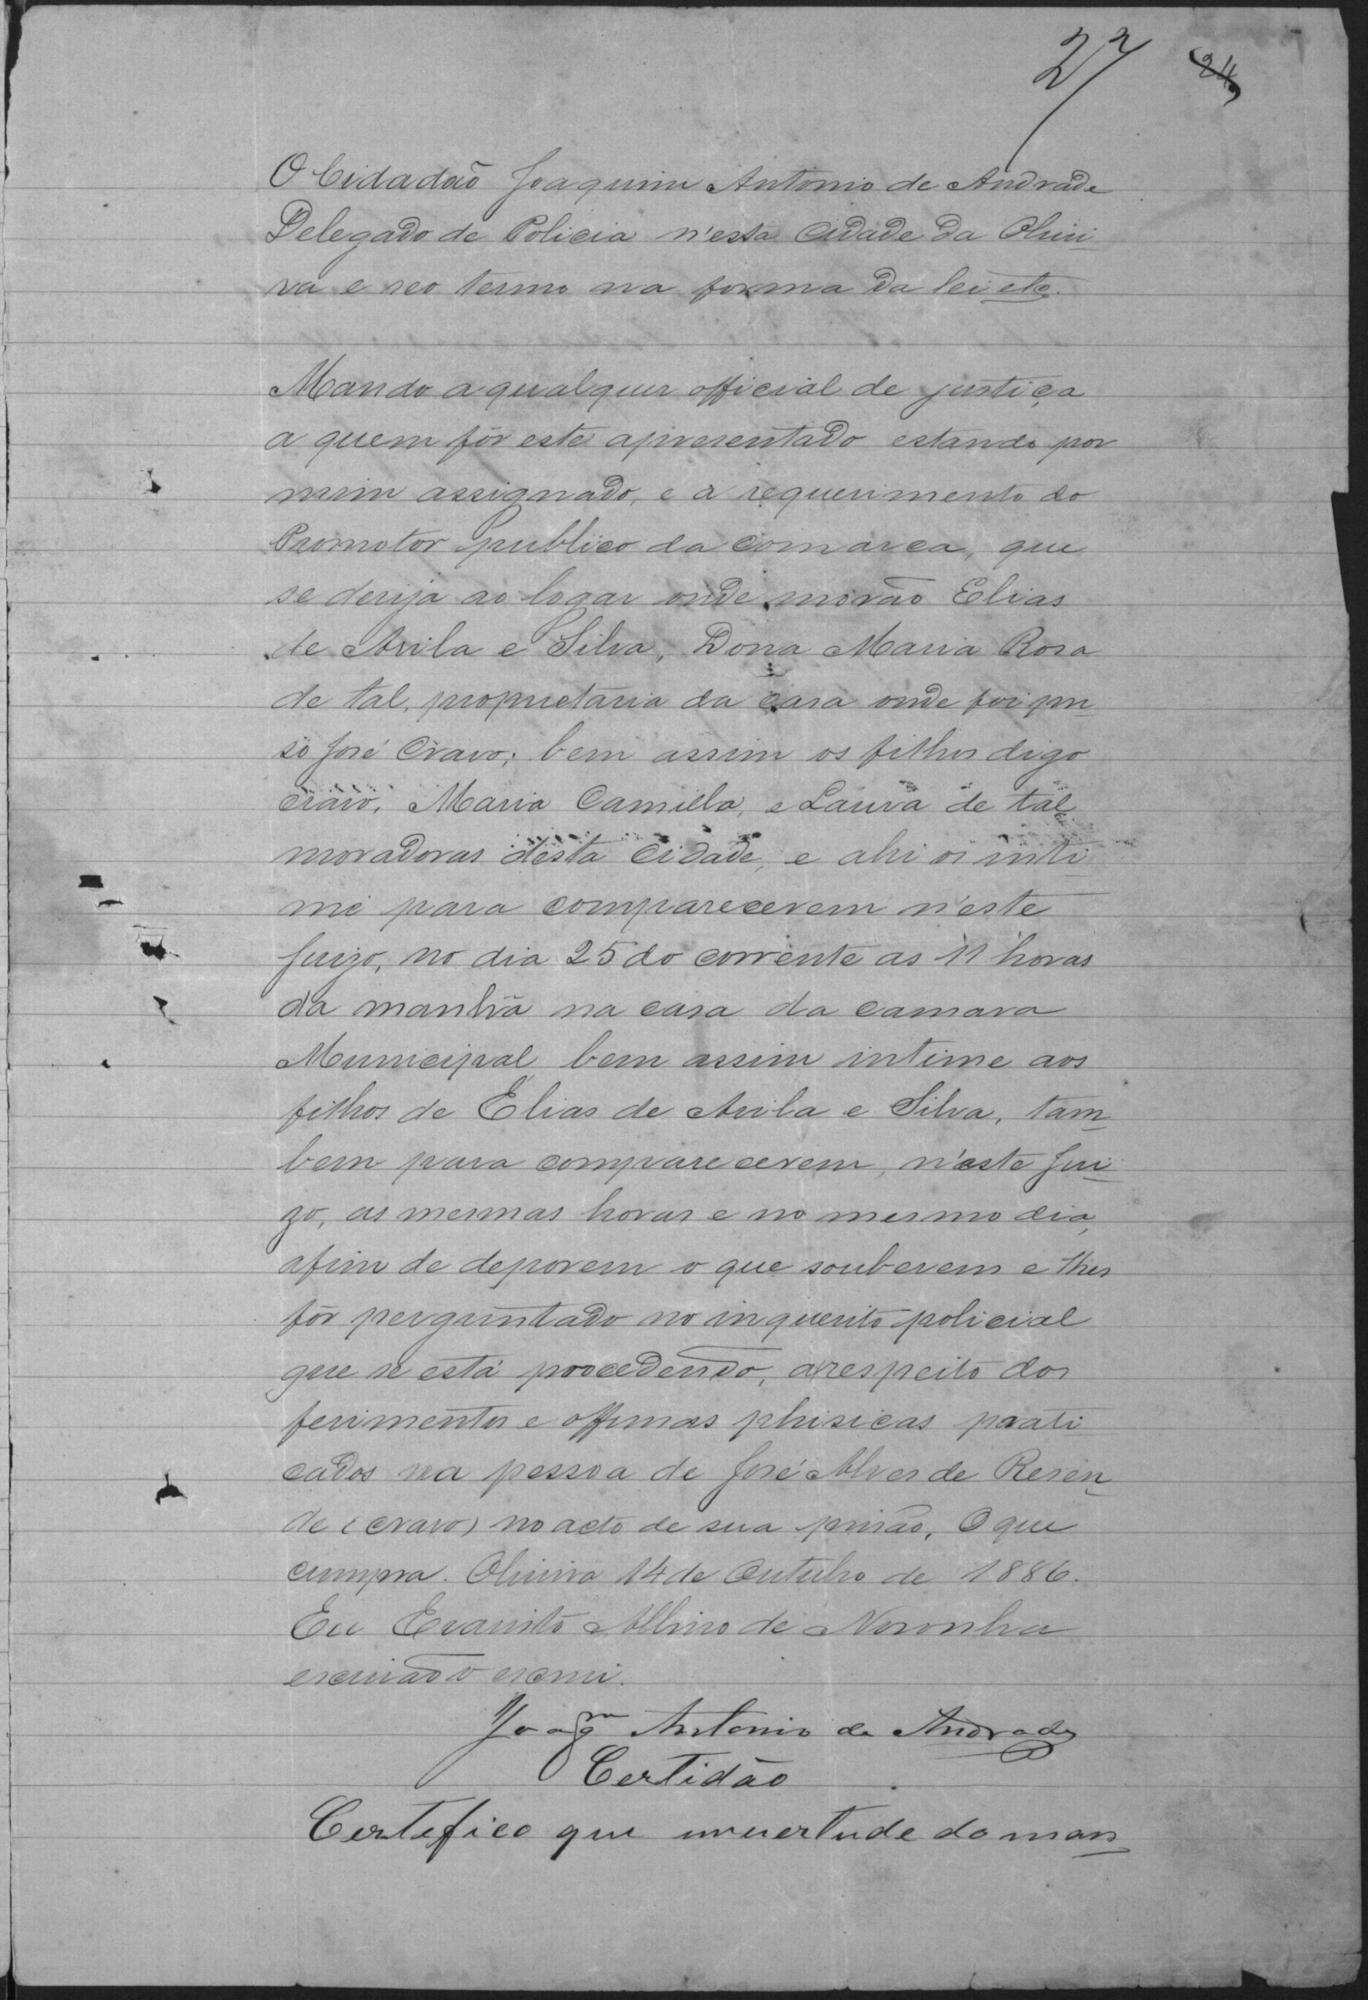 27 24
O Cidadão Joaquim Antonio de Andrade
Delegado de Policia n'esta Cidade da Olivei
ra e seo termo na forma da lei etc.
Mando a qualquer official de justiça
a quem fôr este apresentado estando por
mim assignado, e a requerimento do
Promotor publico da comarca, que
se derija ao logar onde morão Elias
de Avila e Silva, Dona Maria Rosa
de tal, proprietaria da casa onde foi pre
so José Cravo; bem assim os filhos digo
cravo, Maria Camilla, e Laura de tal
moradoras desta cidade, e ahi os inti
me para comparecerem n'este
Juizo, no dia 25 do corrente as 11 horas
da manhã na casa da camara
Municipal, bem assim intime aos
filhos de Elias de Avila e Silva, tam
bem para comparecerem, n'este Jui
zo, as mesmas horas e no mesmo dia,
afim de deporem o que souberem e lhes
fôr perguntado no inquerito policial
que se está procedendo, a respeito dos
ferimentos e offensas phisicas prati
cados na pessoa de José Alves de Resen
de (cravo) no acto de sua prisão, O que
cumpra. Oliveira 14 de Outubro de 1886.
Eu Evaristo Albino de Noronha
escrivão o escrevi.
Joaqm Antonio de Andrade
Certidão
Certefico que emvertude do man